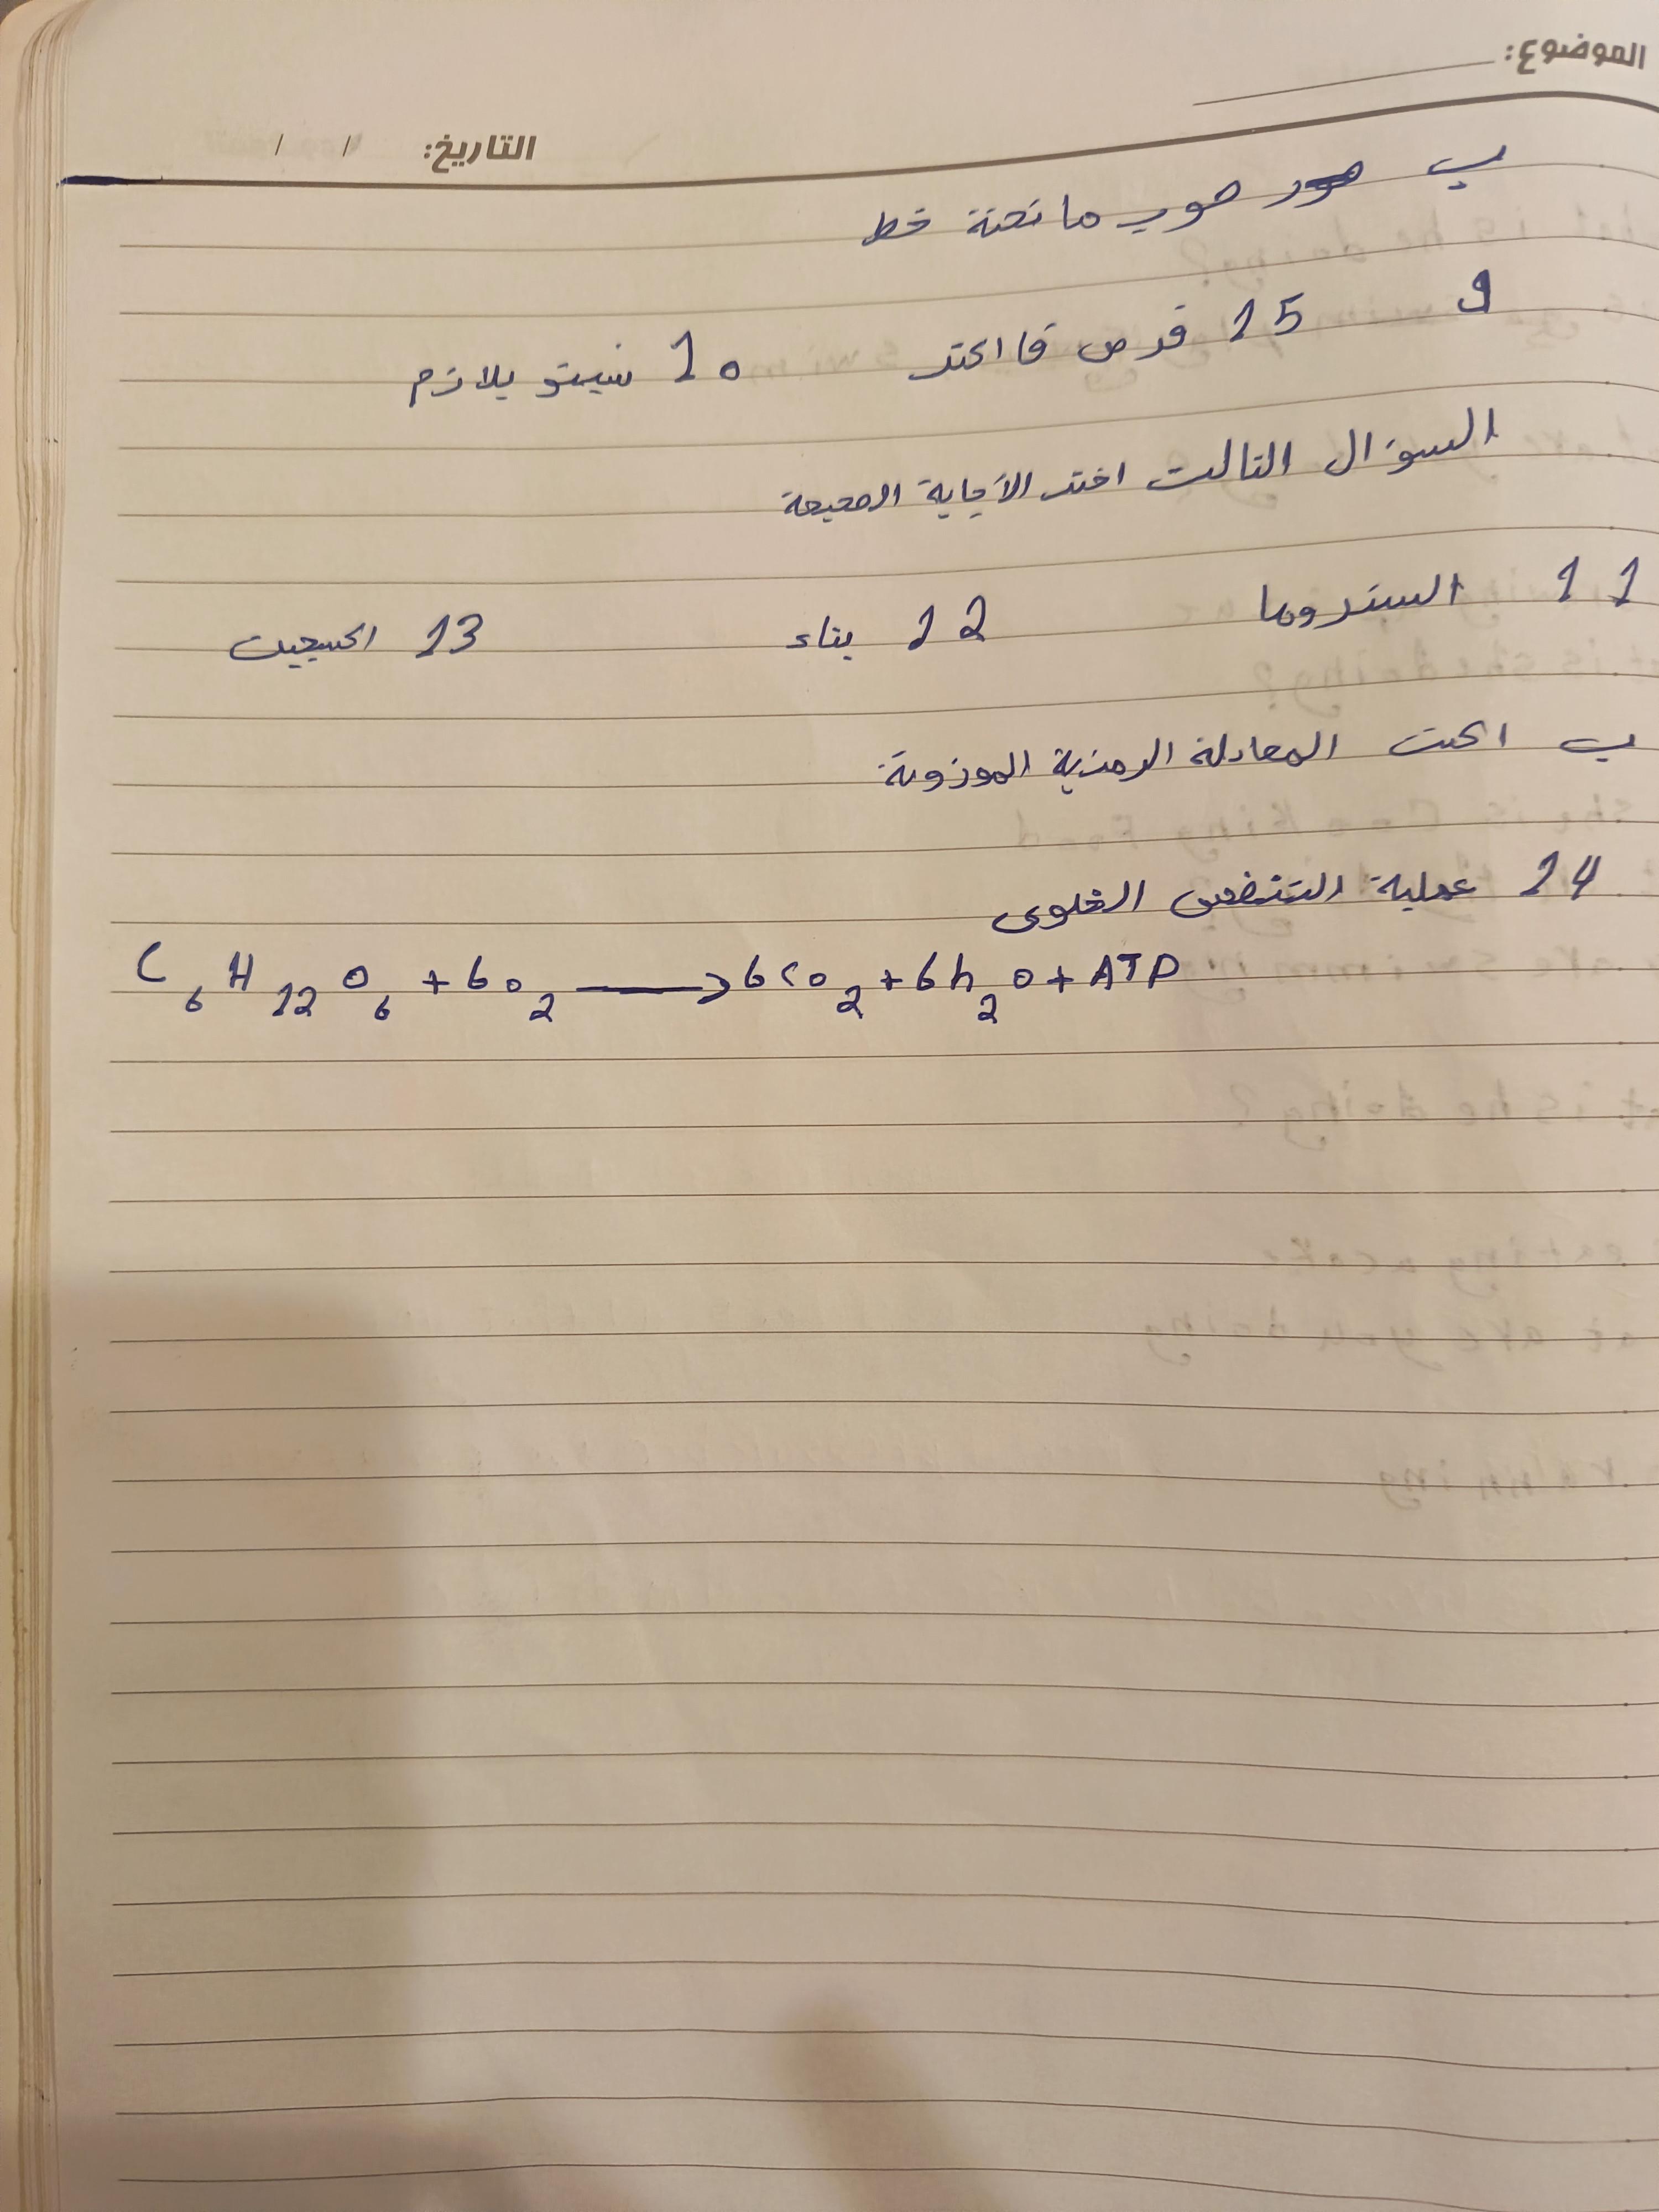 الموضوع:
التاريخ: / /
ب صوب ما تحته خط
9 15 قرص فا اكتر 10 نيتو بلازم
السؤال التالت اختر الأجابة الصحيحة
11 الستروما 12 بناء 13 اكسجين
ب اكتب المعادلة الرمزية الموزونة
14 عملية التنفس الخلوى
C6H12O6 + 6o2 → 6co2 + 6h2o + ATP